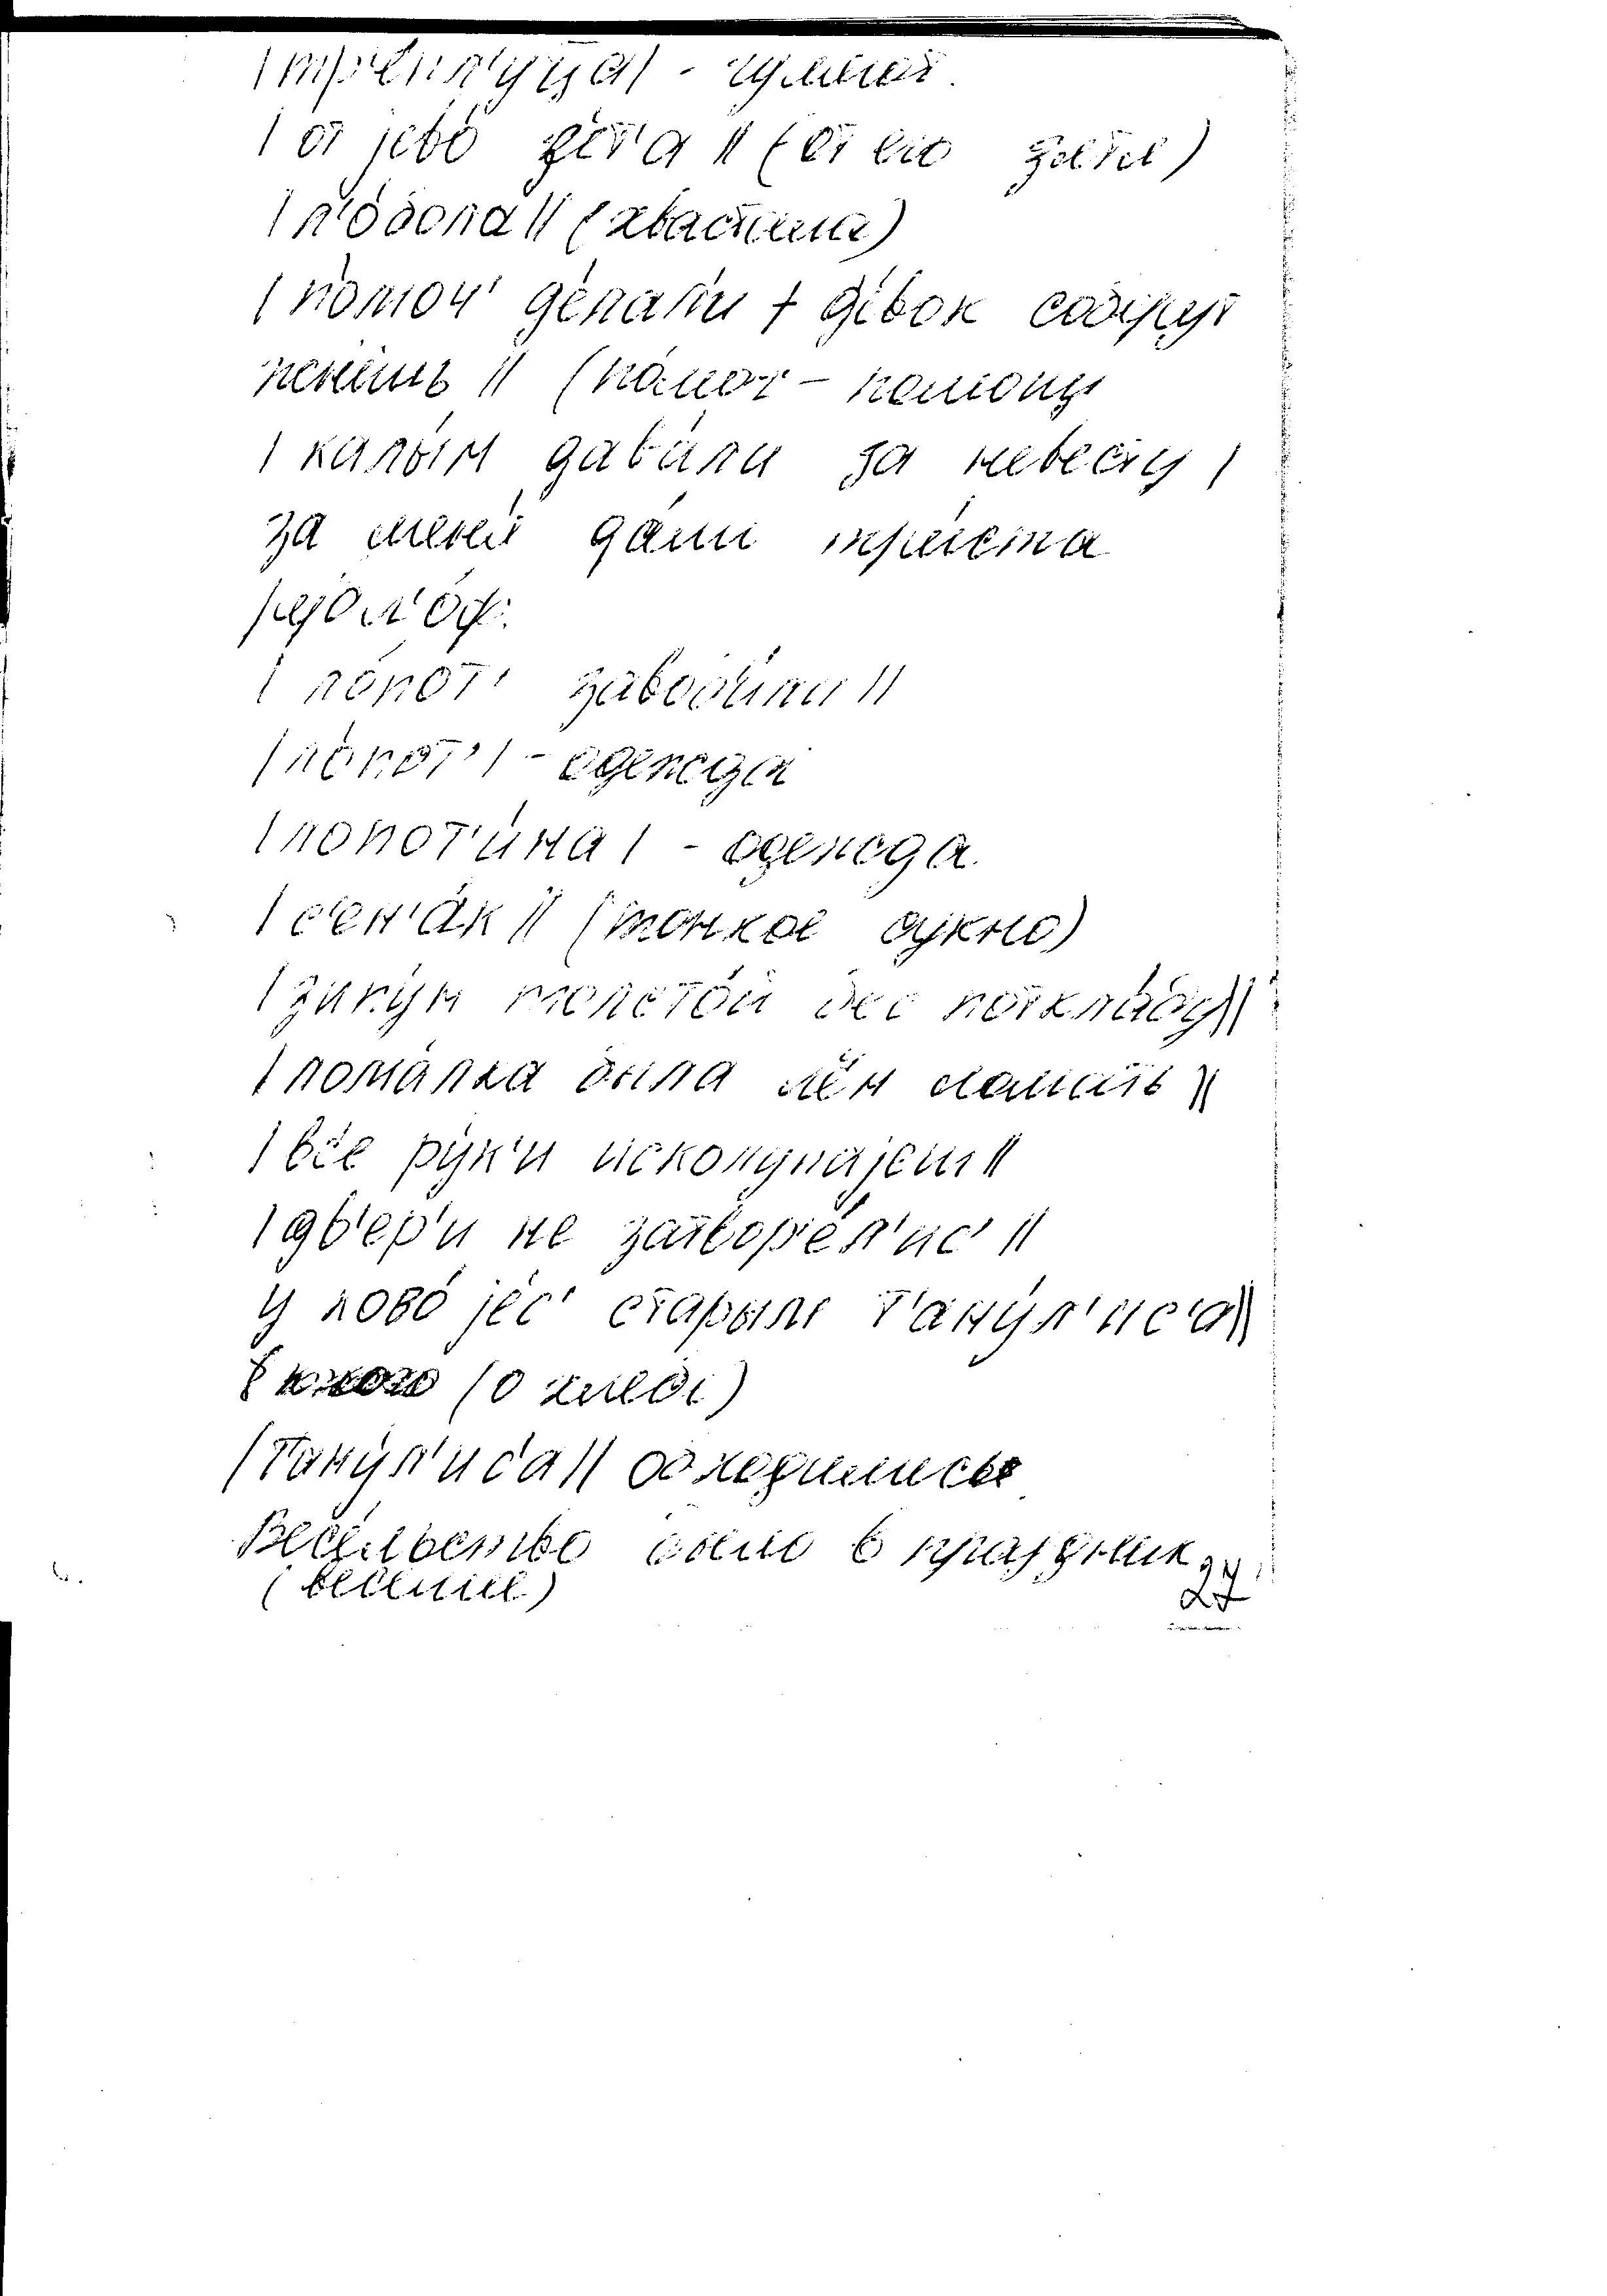 / от јево́ зе́т'а // (от его зятя)
/ по́моч' де́лали + де́вок соберу́т
/ калы́м дава́ли за неве́сту /
за меня́ да́ли три́ста
рубл'о́ф.
/ ло́пот' заводи́ли //
/ ло́пот' / - одежда
/ лопот'и́на / - одежда.
/ с'ен'а́к // (тонкое сукно)
/ зипу́н толсто́й бес поткла́ду //
/ лома́лка была лён ломать //
/ все ру́к'и исколупајеш //
/ дв'е́р'и не затвор'е́л'ис' //
у ково́ јес' старыи т'ану́л'ис'а //
(о хлебе)
/ т'ану́л'ис'а // обходились
Весёльство было в праздник
(веселье)
27